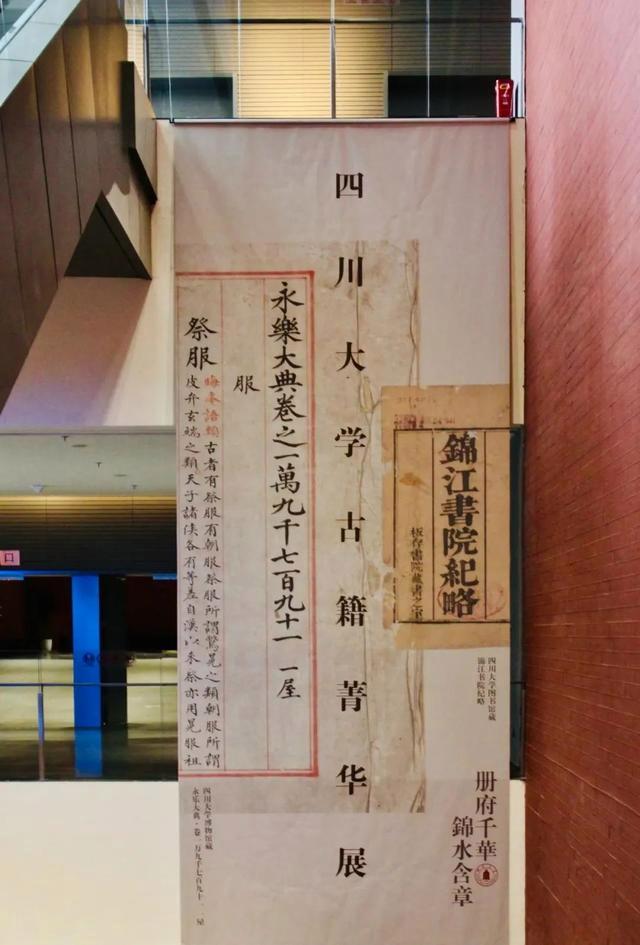 四川大学古籍菁华展
錦江書院紀略
板存書院藏書之
四川大学图书馆藏
锦江书院纪略
册府千華
錦水含章
永樂大典卷之一萬九千七百九十一 一屋
服
祭服
語類古者有祭服有朝服祭服所謂鷩冕之類朝服所謂
皮弁玄端之類天子諸侯各有等差自漢以来祭亦用冕服祖
四川大学博物馆藏
永乐大典·卷一万九千七百九十一 一屋
口